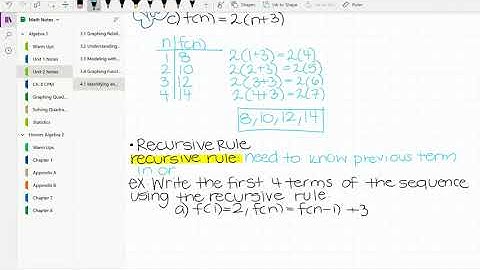 Math Notes
Algebra 1
Warm Ups
Unit 1 Notes
Unit 2 Notes
Ch. 8 CPM
Graphing Quad...
Solving Quadra...
Statistics
Honors Algebra 2
Warm Ups
Chapter 1
Appendix A
Appendix B
Chapter 3
Chapter 4
3.3 Graphing Relat...
3.2 Understanding...
3.3 Modeling with...
3.4 Graphing Funct...
4.1 Identifying an...
Shapes
Ink to Shape
c) f(n) = 2(n+3)
n f(n)
1 8 2(1+3)=2(4)
2 10 2(2+3)=2(5)
3 12 2(3+3)=2(6)
4 14 2(4+3)=2(7)
8, 10, 12, 14
• Recursive Rule
recursive rule: need to know previous term
in or
ex Write the first 4 terms of the sequence
using the recursive rule
a) f(1)=2, f(n)= f(n-1) +3